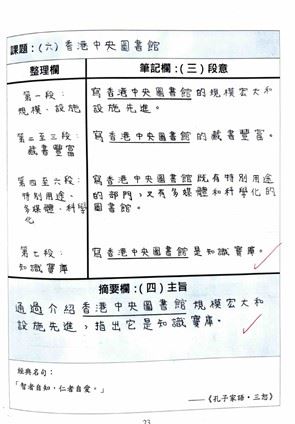 課題：(六)香港中央圖書館
整理欄
筆記欄：(三)段意
第一段：
規模、設施
寫香港中央圖書館的規模宏大和
設施先進。
第二至三段：
藏書豐富
寫香港中央圖書館的藏書豐富。
第四至六段：
特別用途、
多媒體、科學
化
寫香港中央圖書館既有特別用途
的部門，又有多媒體和科學化的
圖書館。
第七段：
知識寶庫
寫香港中央圖書館是知識寶庫。
摘要欄：(四)主旨
通過介紹香港中央圖書館規模宏大和
設施先進，指出它是知識寶庫。
經典名句：
「智者自知，仁者自愛。」
——《孔子家語·三恕》
23